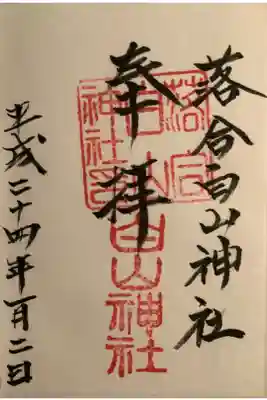 落合白山神社
奉拝
落合白山神社印
白山神社
平成二十四年一月二日